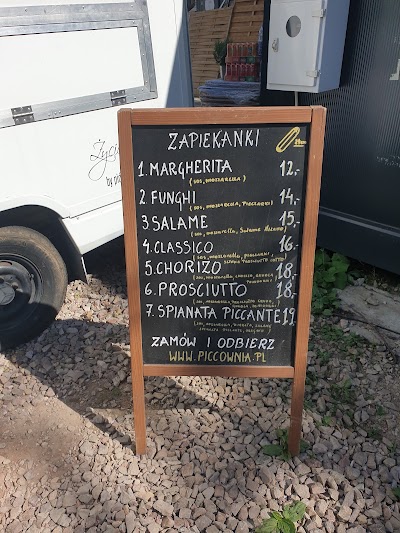 Życie
by
ZAPIEKANKI
1. MARGHERITA 12,-
(SOS, MOZZARELLA)
2. FUNGHI 14,-
(SOS, MOZZARELLA, PIECZARKI)
3. SALAME 15,-
(SOS, MOZZARELLA, SALAME MILANO)
4. CLASSICO 16,-
(SOS, MOZZARELLA, PIECZARKI,
PROSCIUTTO COTTO)
5. CHORIZO 18,-
(SOS, MOZZARELLA, CHORIZO,
6. PROSCIUTTO 18,-
(SOS, MOZZARELLA, PROSCIUTTO CRUDO,
7. SPIANATA PICCANTE 19
(SOS, MOZZARELLA, SALAME
SPIANATA PICCANTE,
ZAMÓW I ODBIERZ
WWW.PICCOWNIA.PL